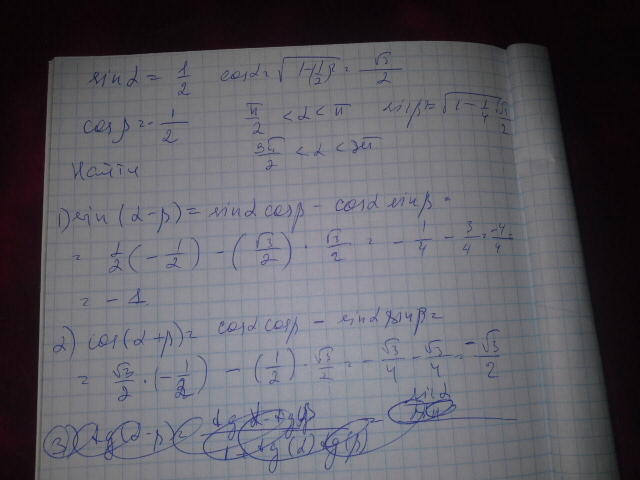 sin α = 1/2 cos α = √(1-(1/2)²) = √3/2
cos β = -1/2 π/2 < α < π sin β = √(1-1/4) √3/2
3π/2 < α < 2π
Найти
1) sin (α-β) = sin α cos β - cos α sin β =
= 1/2 (-1/2) - (√3/2) · √3/2 = -1/4 - 3/4 = -4/4 =
= -1
2) cos (α+β) = cos α cos β - sin α sin β =
= √3/2 · (-1/2) - (1/2) · √3/2 = -√3/4 - √3/4 = -√3/2
3) tg (α-β) = tg α - tg β / 1 + tg (α) tg (β)